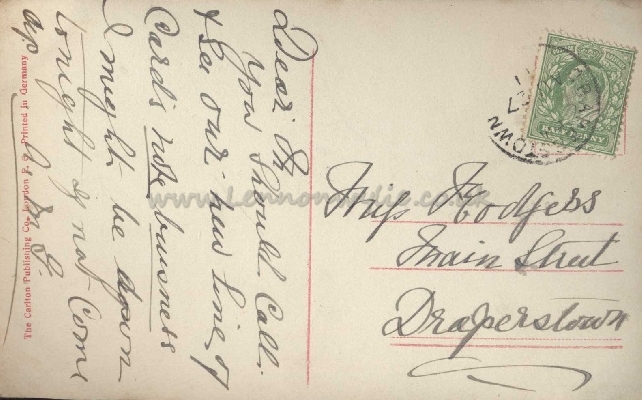 Dear M
You should Call.
& See our new line of
Cards note buisness
I might be down
tonight if not Come
up.
The Carlton Publishing Co., London E. C. Printed in Germany
Miss Hodgess
Main Street
Draperstown
HALFPENNY
www.Lennonwylie.co.uk